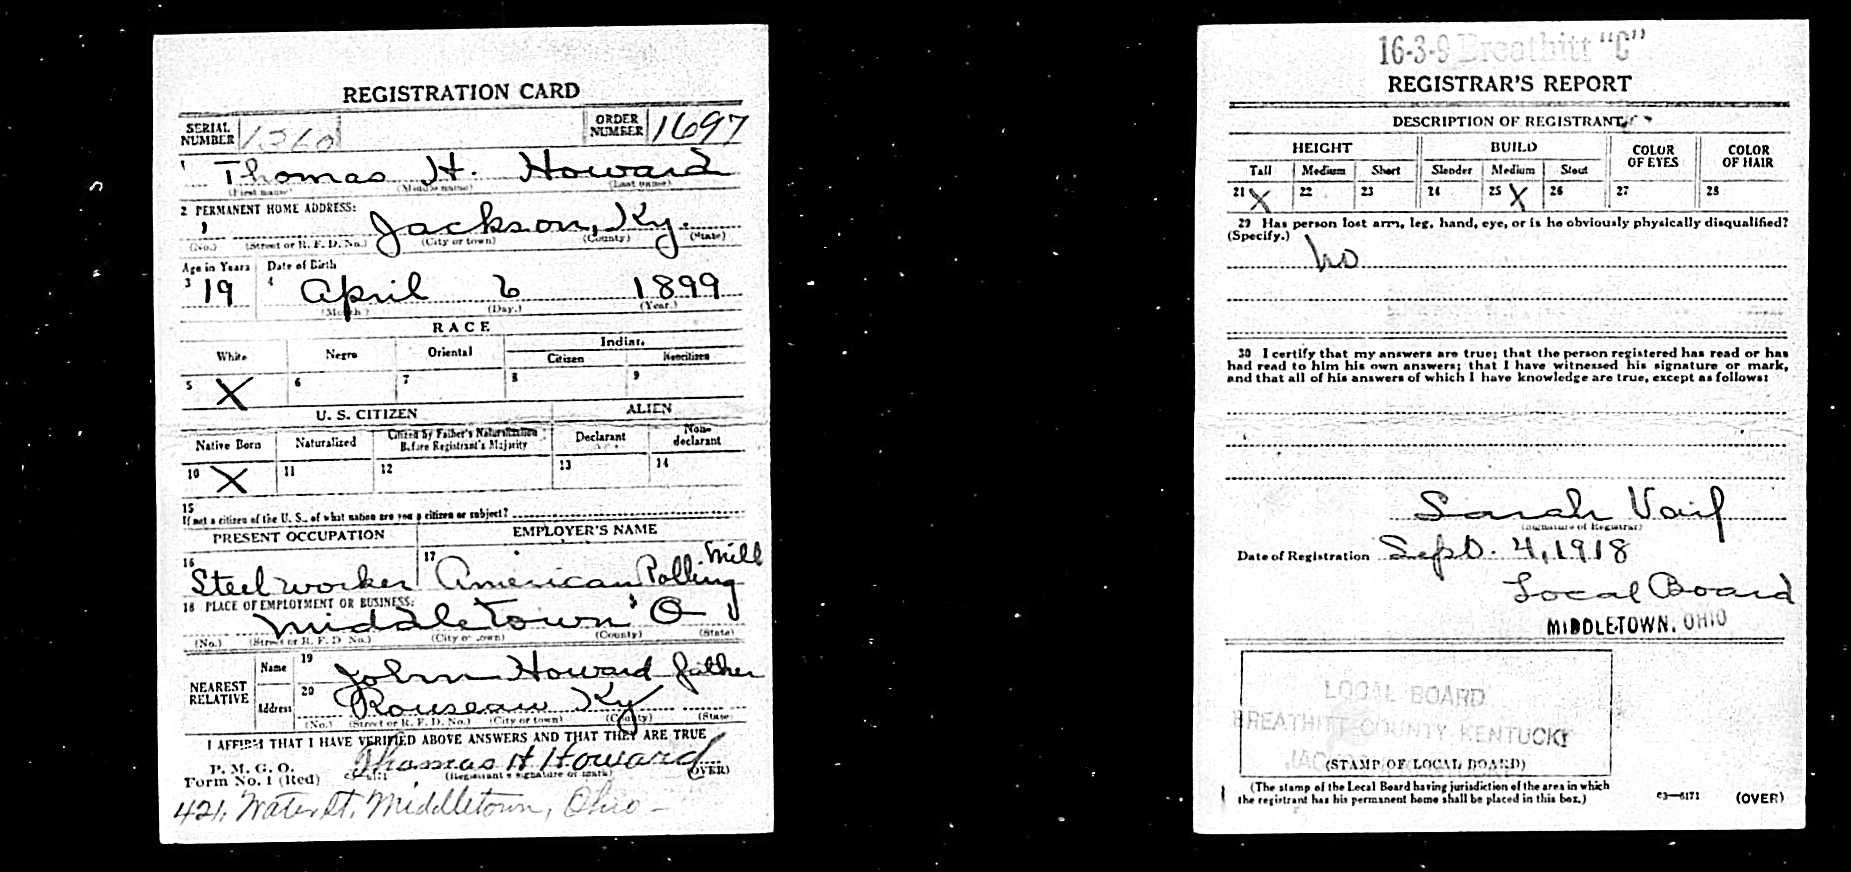 REGISTRATION CARD
SERIAL NUMBER 1360 ORDER NUMBER 1697
1 Thomas H. Howard
(First name) (Middle name) (Last name)
2 PERMANENT HOME ADDRESS:
Jackson, Ky.
(No.) (Street or R. F. D. No.) (City or town) (County) (State)
Age in Years Date of Birth
3 19 4 April 6 1899
(Month) (Day.) (Year.)
RACE
White Negro Oriental Indian
Citizen Noncitizen
5 X 6 7 8 9
U. S. CITIZEN ALIEN
Native Born Naturalized Citizen by Father's Naturalization Before Registrant's Majority Declarant Non-declarant
10 X 11 12 13 14
15
If not a citizen of the U. S., of what nation are you a citizen or subject?
PRESENT OCCUPATION EMPLOYER'S NAME
16 Steel worker 17 American Rolling Mill
18 PLACE OF EMPLOYMENT OR BUSINESS:
Middletown O
(No.) (Street or R. F. D. No.) (City or town) (County) (State)
NEAREST RELATIVE
Name 19 John Howard father
Address 20 Rouseau Ky
(No.) (Street or R. F. D. No.) (City or town) (County) (State)
I AFFIRM THAT I HAVE VERIFIED ABOVE ANSWERS AND THAT THEY ARE TRUE
P. M. G. O.
Form No. 1 (Red) Thomas H Howard (OVER)
(Registrant's signature or mark)
421, Water St. Middletown, Ohio -
16-3-9 Breathitt "C"
REGISTRAR'S REPORT
DESCRIPTION OF REGISTRANT
HEIGHT BUILD COLOR OF EYES COLOR OF HAIR
Tall Medium Short Slender Medium Stout
21 X 22 23 24 25 X 26 27 28
29 Has person lost arm, leg, hand, eye, or is he obviously physically disqualified?
(Specify.) No
30 I certify that my answers are true; that the person registered has read or has
had read to him his own answers; that I have witnessed his signature or mark,
and that all of his answers of which I have knowledge are true, except as follows:
Sarah Vail
(Signature of Registrar)
Date of Registration Sept. 4, 1918
Local Board
MIDDLETOWN, OHIO
LOCAL BOARD
BREATHITT COUNTY KENTUCKY
(STAMP OF LOCAL BOARD)
(The stamp of the Local Board having jurisdiction of the area in which
the registrant has his permanent home shall be placed in this box.)
c3—6171 (OVER)